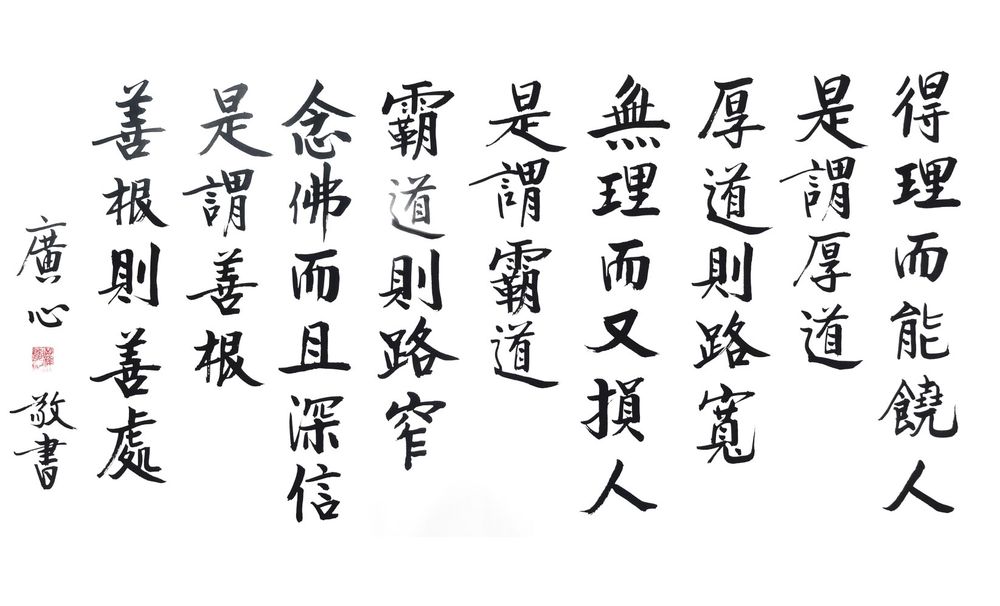 得理而能饒人
是謂厚道
厚道則路寬
無理而又損人
是謂霸道
霸道則路窄
念佛而且深信
是謂善根
善根則善處
廣心
敬書